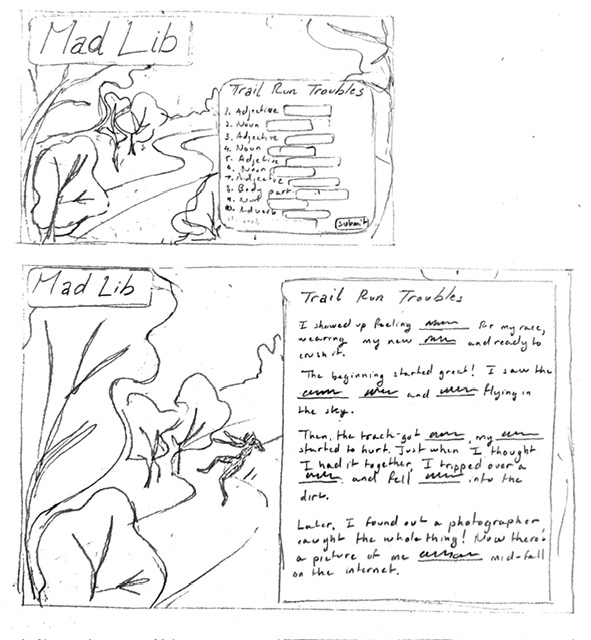 Mad Lib
Trail Run Troubles
1. Adjective
2. Noun
3. Adjective
4. Noun
5. Adjective
6. Noun
7. Adjective
8. Body part
9. Noun
10. Adverb
submit
Mad Lib
Trail Run Troubles
I showed up feeling for my race,
wearing my new and ready to
crush it.
The beginning started great! I saw the
and flying in
the sky.
Then, the track got , my
started to hurt. Just when I thought
I had it together, I tripped over a
and fell into the
dirt.
Later, I found out a photographer
caught the whole thing! Now there's
a picture of me mid-fall
on the internet.